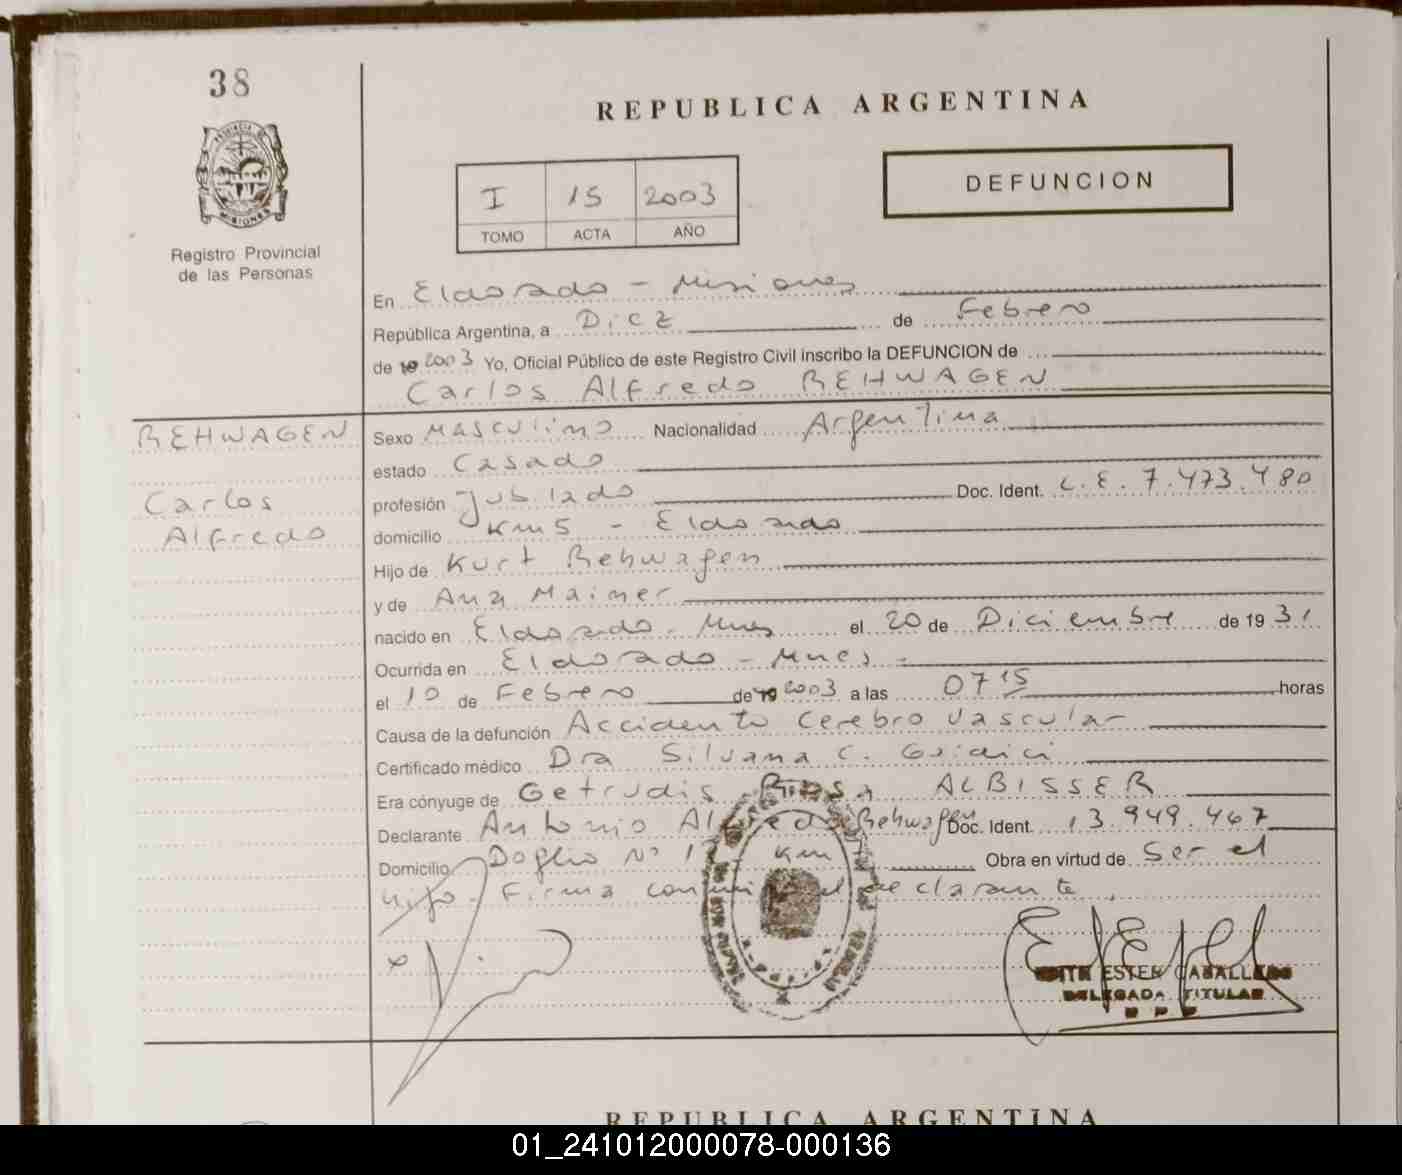 38
PROVINCIA DE
MISIONES
Registro Provincial
de las Personas
REPUBLICA ARGENTINA
I 15 2003
TOMO ACTA AÑO
DEFUNCION
En Eldorado - Misiones
República Argentina, a Diez de Febrero
de 19 2003 Yo, Oficial Público de este Registro Civil inscribo la DEFUNCION de
Carlos Alfredo REHWAGEN
REHWAGEN
Carlos
Alfredo
Sexo Masculino Nacionalidad Argentina
estado Casado
profesión Jubilado Doc. Ident. L.E. 7.473.480
domicilio Km 5 - Eldorado
Hijo de Kurt Rehwagen
y de Ana Maimer
nacido en Eldorado - Mnes el 20 de Diciembre de 19 31
Ocurrida en Eldorado - Mnes -
el 10 de Febrero de 19 2003 a las 07 15 horas
Causa de la defunción Accidente Cerebro Vascular
Certificado médico Dra Silvana C.
Era cónyuge de Getrudis Rosa ALBISSER
Declarante Antonio Alfredo Rehwagen Doc. Ident. 13.949.467
Domicilio Doglio N° Km Obra en virtud de Ser el
hijo - Firma conmigo el declarante
EDITH ESTER CABALLERO
DELEGADA TITULAR
R P P
REPUBLICA ARGENTINA
01_241012000078-000136